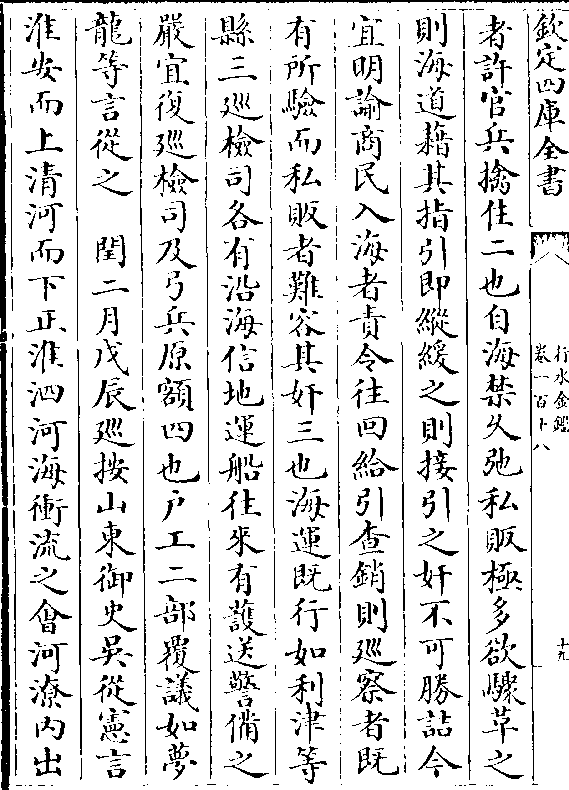 欽定四庫全書
行水金鑑
卷一百十八
十九
者許官兵擒住二也自海禁久弛私販極多欲驟革之
則海道藉其指引即縱緩之則接引之奸不可勝詰今
宜明諭商民入海者責令往回給引查銷則廵察者既
有所驗而私販者難容其奸三也海運既行如利津等
縣三廵檢司各有沿海信地運船往來有護送警備之
嚴宜復廵檢司及弓兵原額四也户工二部覆議如夢
龍等言從之　閏二月戊辰廵按山東御史吳從憲言
淮安而上清河而下正淮泗河海衝流之會河潦内出